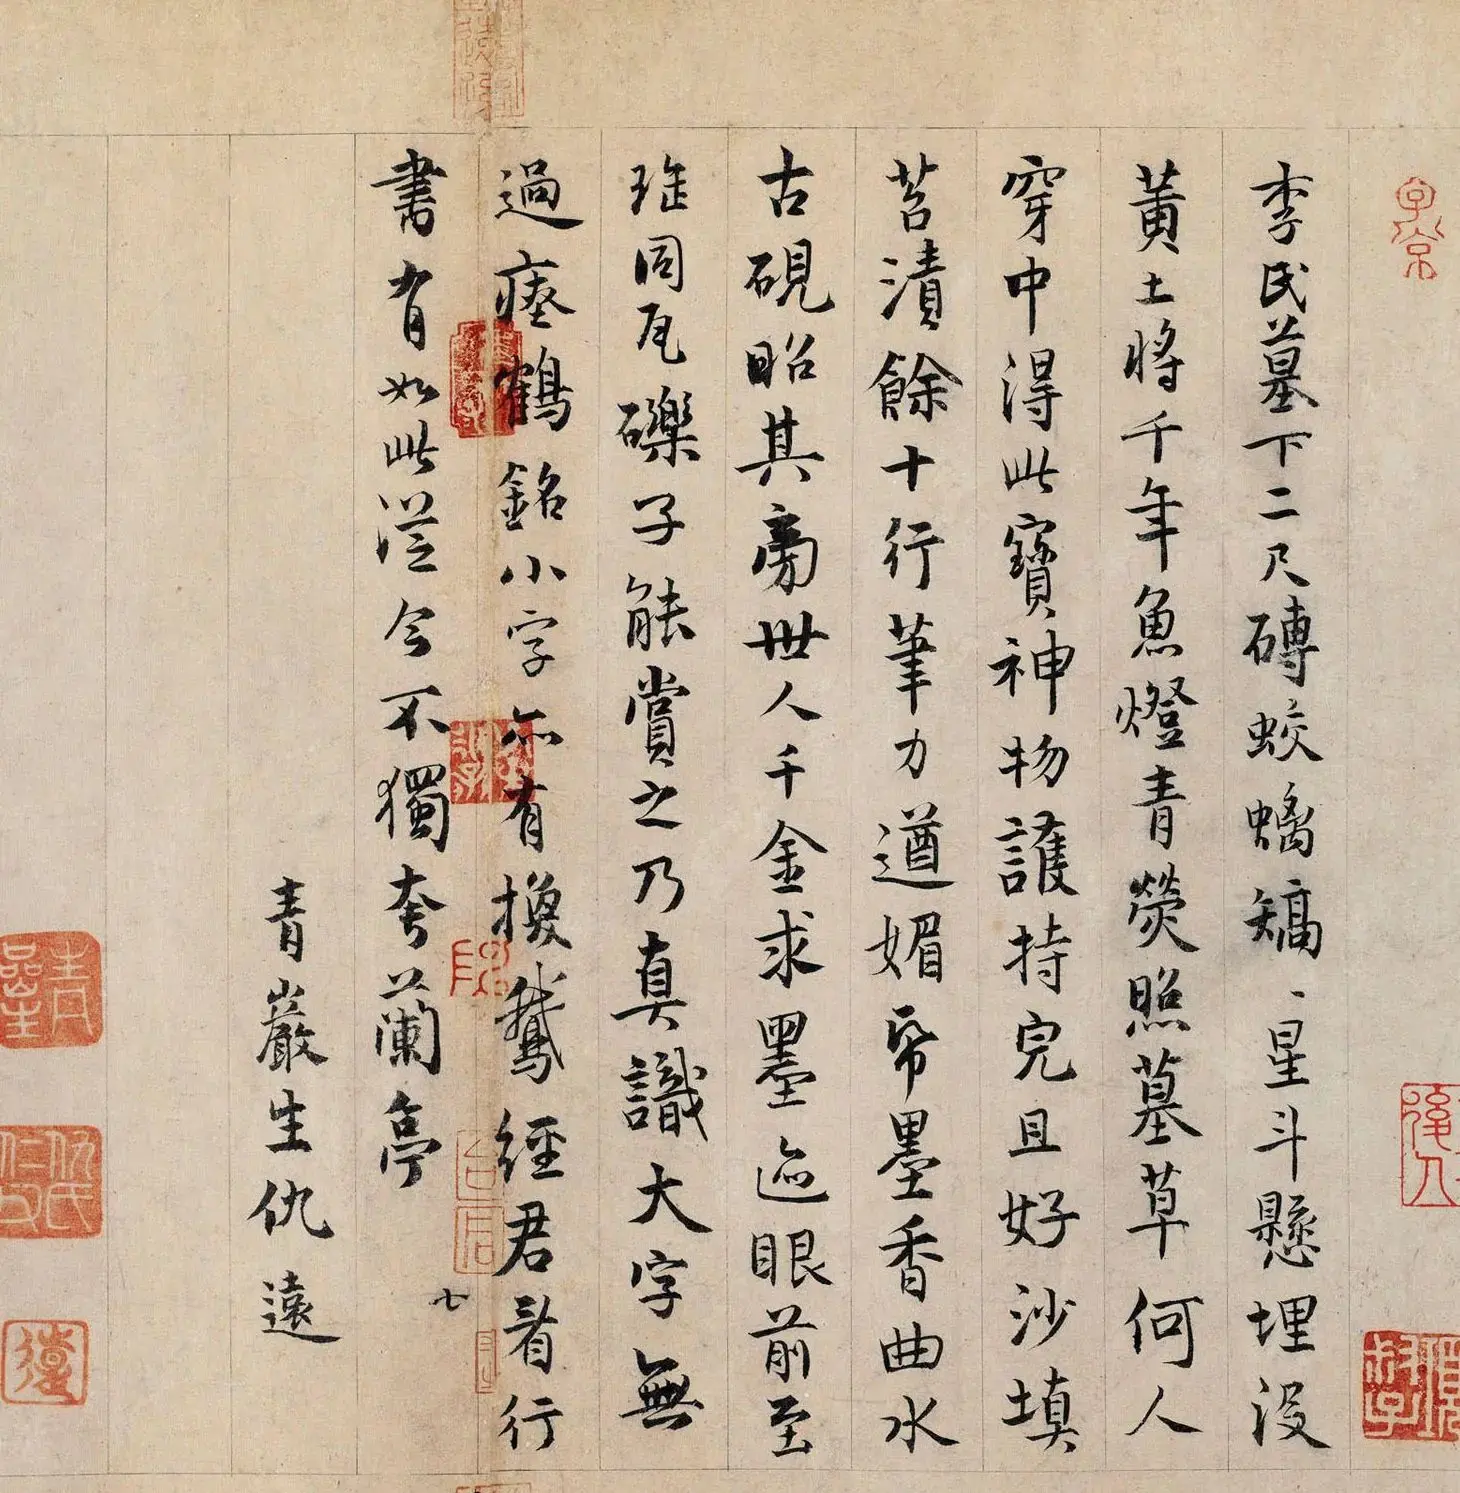 子京
李氏墓下二尺磚蛟螭矯、星斗懸埋沒
黃土將千年魚燈青熒照墓草何人
穿中得此寶神物護持完且好沙填
苔漬餘十行筆力遒媚帋墨香曲水
古硯昭其旁世人千金求墨迹眼前至
珤同瓦礫子能賞之乃真識大字無
過瘞鶴銘小字亦有換鵝經君看行
書有如此從今不獨夸蘭亭
七
青巖生仇遠
仇氏仁父
遠